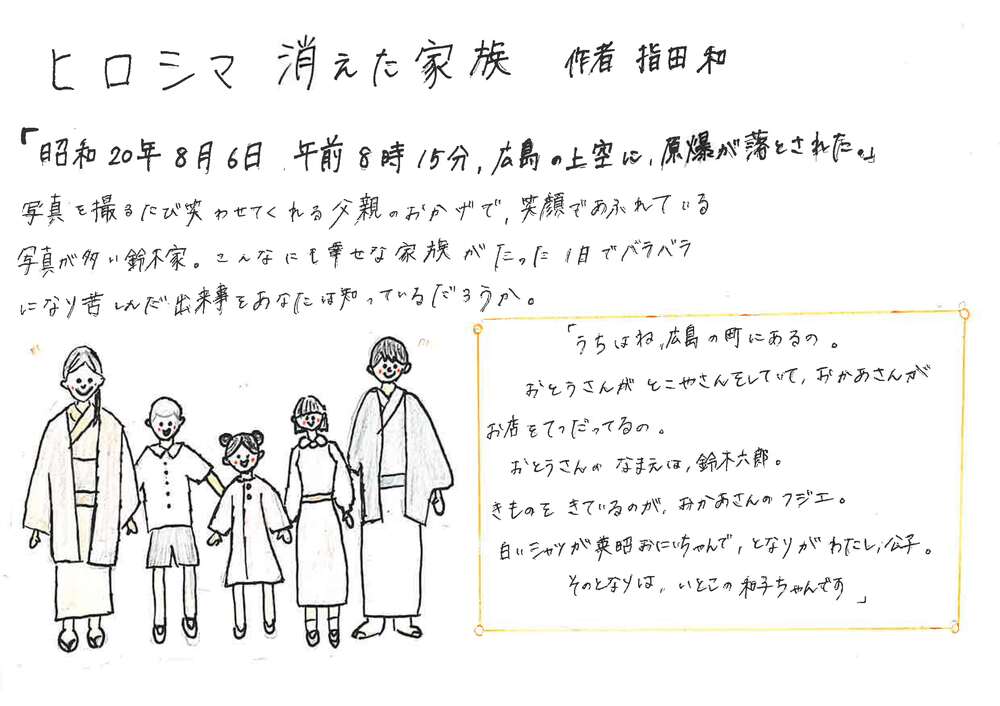 ヒロシマ 消えた家族 作者 指田 和
「昭和20年8月6日 午前8時15分、広島の上空に、原爆が落とされた。」
写真を撮るたび笑わせてくれる父親のおかげで、笑顔であふれている
写真が多い鈴木家。こんなにも幸せな家族がたった1日でバラバラ
になり苦しんだ出来事をあなたは知っているだろうか。
「うちはね、広島の町にあるの。
おとうさんがとこやさんをしていて、おかあさんが
お店をてつだってるの。
おとうさんのなまえは、鈴木六郎。
きものをきているのが、おかあさんのフジエ。
白いシャツが英昭おにいちゃんで、となりがわたし、公子。
そのとなりは、いとこの和子ちゃんです」